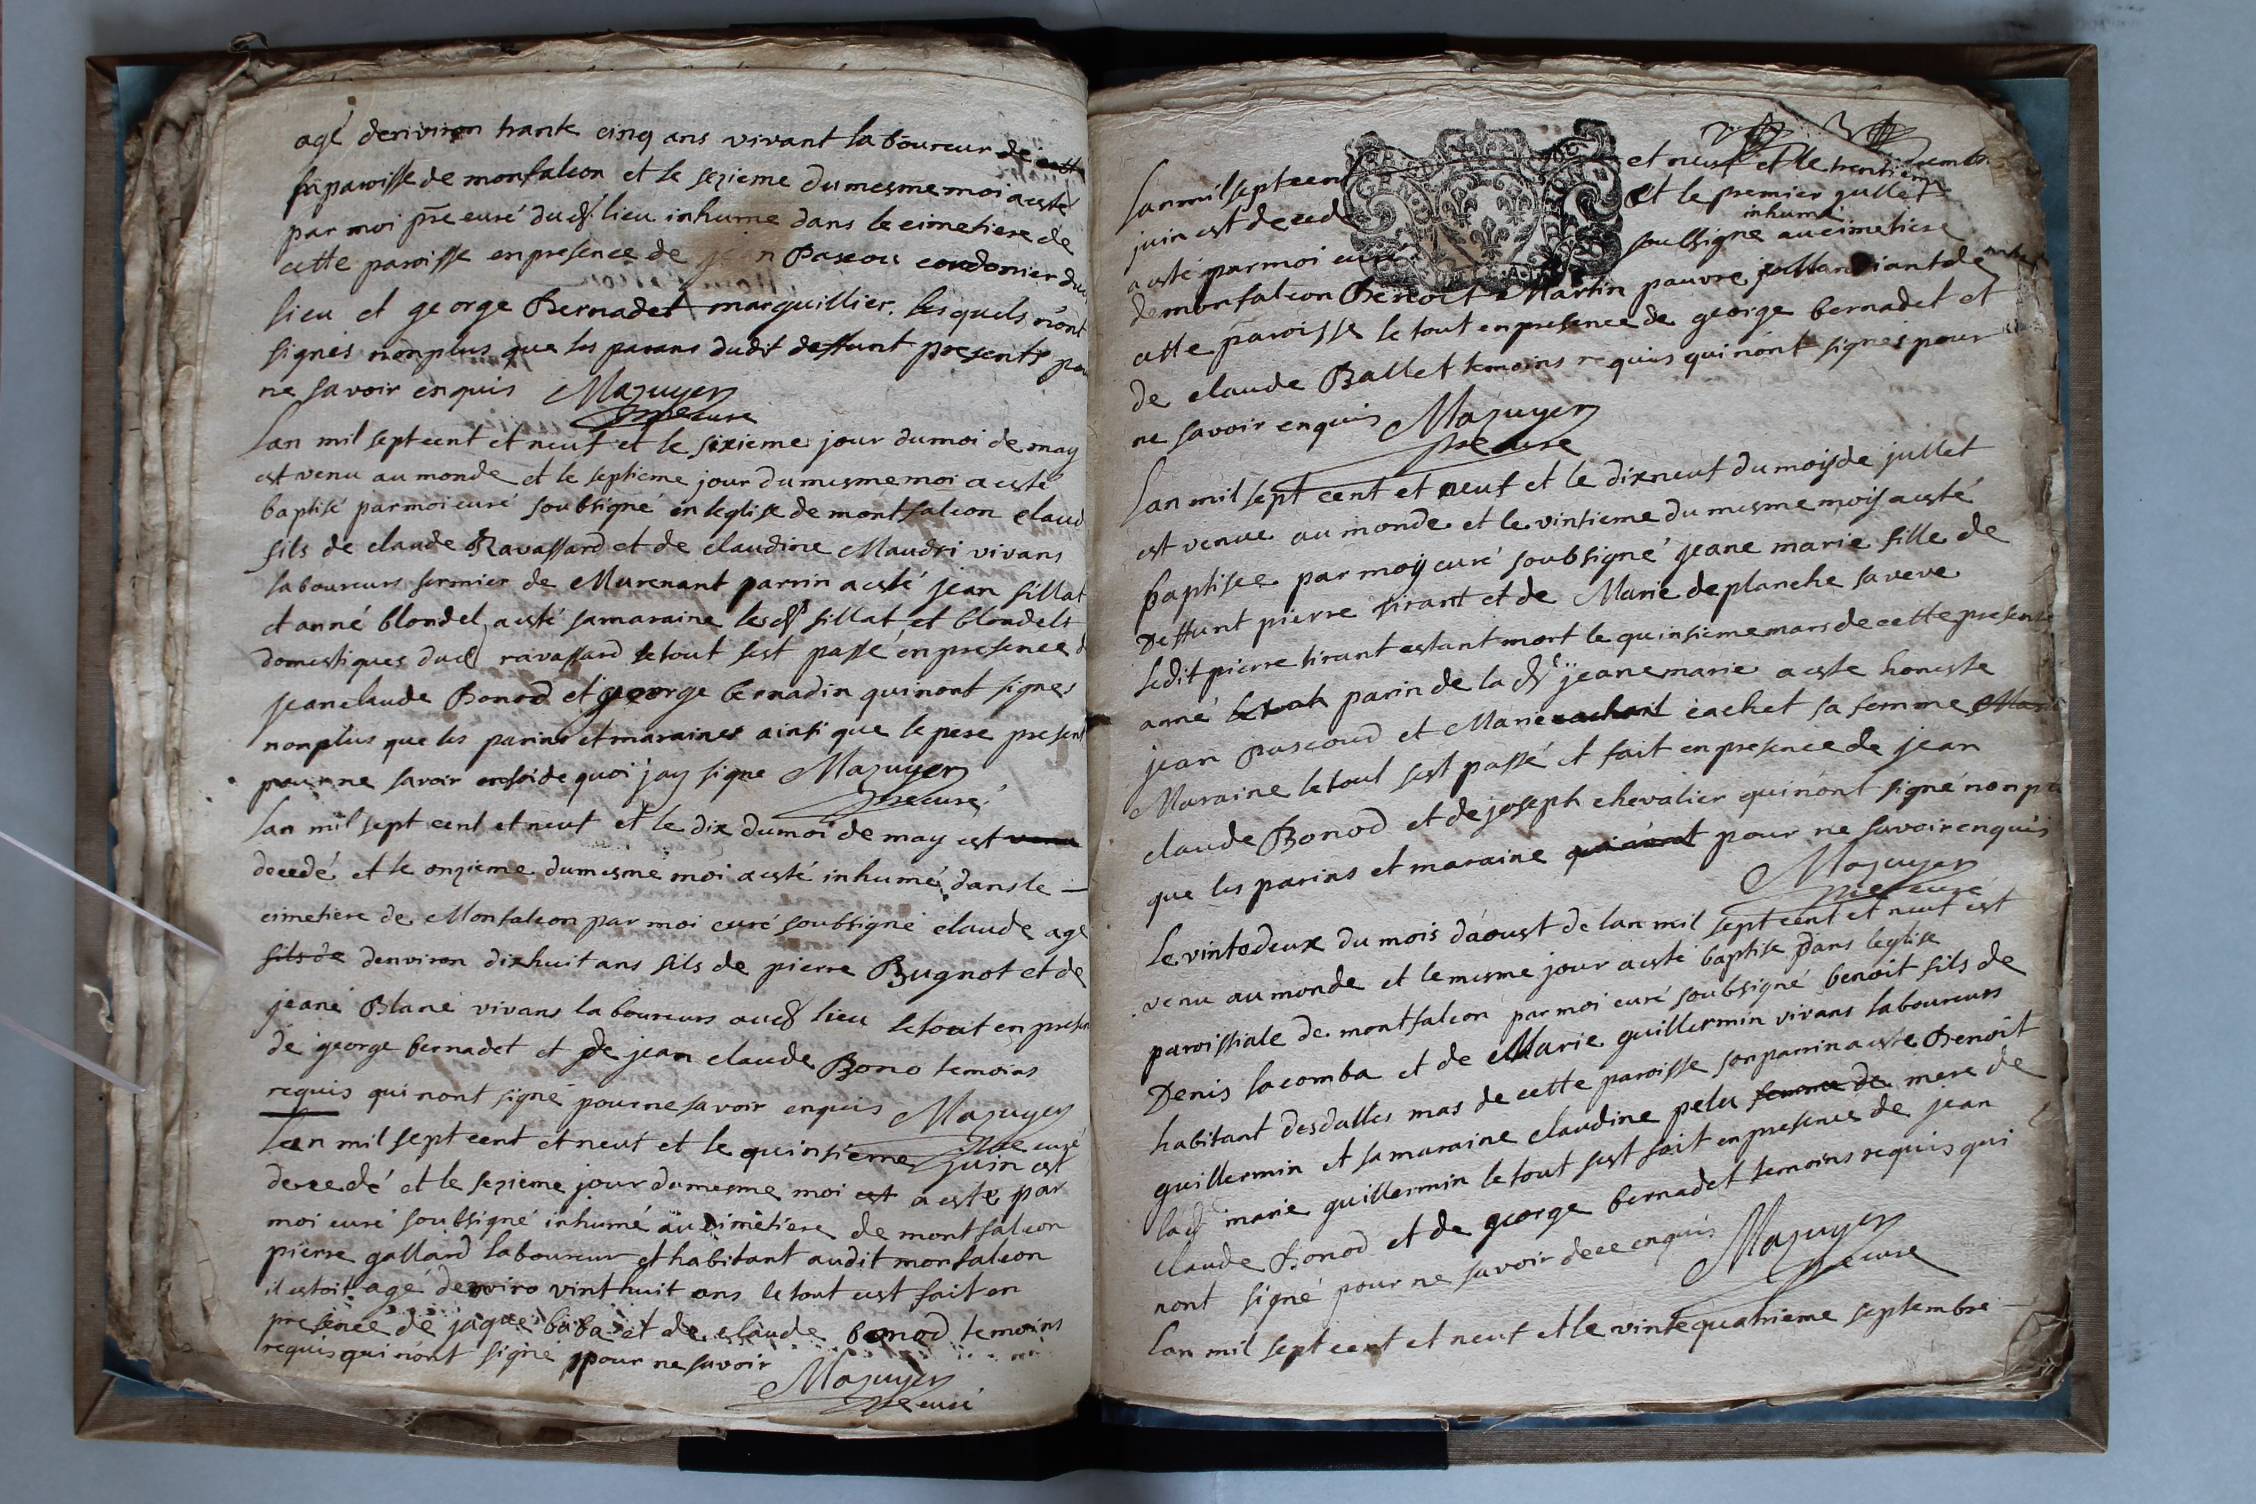 agé denviron trante cinq ans vivant laboureur de
sa paroisse de monfalcon et le sezieme du mesme moi a esté
par moi pre curé dud. lieu inhume dans le cimetiere de
cette paroisse en presence de Pascou cordonier dud
lieu et george Bernadet marguillier. lesquels n'ont
signés nonplus que les parans dudit deffunt presents pou
ne savoir enquis Mazuyer
pre cure
Lan mil sept cent et neuf et le sixieme jour du moi de may
est venu au monde et le septieme jour du mesme moi a esté
baptisé par moi curé soubsigné en leglise de montfalcon claud
fils de claude Ravassard et de claudine Maudri vivans
laboureurs fermier de Marenant parrin a esté jean fillat
et anné blondel a esté sa maraine lesd. fillat et blondels
domestiques dud ravassard le tout sest passé en presence d
jean claude Bonod et george bernadin qui nont signes
nonplus que les parins et maraines ainsi que le pere present
pour ne savoir de quoi jay signe Mazuyer
pre curé
Lan mil sept cent et neuf et le dix du moi de may est venu
decedé et le onzieme du mesme moi a esté inhumé dans le
cimetiere de Monfalcon par moi curé soubsigné claude age
fils de denviron dixhuit ans fils de pierre Bugnot et de
jeane Blanc vivans laboureurs aud lieu le tout en presen
de george bernadet et de jean claude Bono temoins
requis qui nont signé pour ne savoir enquis Mazuyer
pre curé
Lan mil sept cent et neuf et le quinsieme juin est
decedé et le sezieme jour du mesme moi est a este par
moi curé soubsigné inhumé au cimetiere de montfalcon
pierre gallard laboureur et habitant audit monfalcon
il estoit agé denviro vint huit ans le tout est fait en
presence de jaque baba et de claude bonod temoins
requis qui nont signé pour ne savoir
Mazuyer
pre curé
Lan mil sept cent et neuf et le trentieme
juin est decede et le premier jullet
a esté par moi curé soubsigne inhumé au cimetiere
de monfalcon Benoit Martin pauvre de
cette paroisse le tout en presence de george bernadet et
de claude Ballet temoins requis qui nont signes pour
ne savoir enquis Mazuyer
pre cure
Lan mil sept cent et neuf et le dixneuf du mois de jullet
est venue au monde et le vintieme du mesme mois a esté
baptisee par moy curé soubsigné jeane marie fille de
deffunt pierre sirant et de Marie deplanche sa veve
ledit pierre sirant estant mort le quinsieme mars de cette presente
anné parin de la d jeane marie a este honeste
jean Pascoud et Marie cachet sa femme
Maraine le tout sest passé et fait en presence de jean
claude Bonod et de joseph chevalier qui nont signé non plu
que les parins et maraine pour ne savoir enquis
Mazuyer
pre cure
Le vintedeux du mois daoust de lan mil sept cent et neuf est
venu au monde et le mesme jour a esté baptise dans leglise
paroissiale de montfalcon par moi curé soubsigné benoit fils de
Denis lacomba et de Marie guillermin vivans laboureurs
habitant desdalles mas de cette paroisse son parrin a este Benoit
guillermin et sa maraine claudine pelu femme de mere de
lad marie guillermin le tout sest fait en presence de jean
claude Bonod et de george bernadet temoins requis qui
nont signé pour ne savoir de ce enquis Mazuyer
pre cure
Lan mil sept cent et neuf et le vintequatrieme septembre